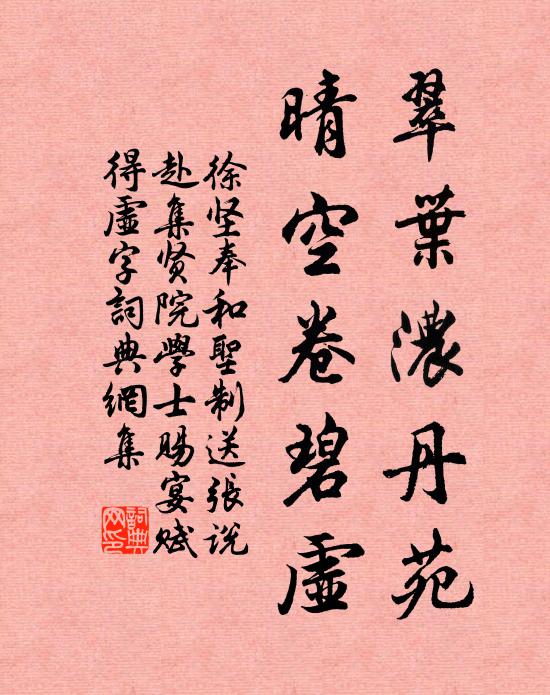 翠葉濃丹苑
晴空卷碧虛
徐坚奉和聖制送張说
赴集贤院學士賜宴赋
得虛字詞典網集
詞典网印